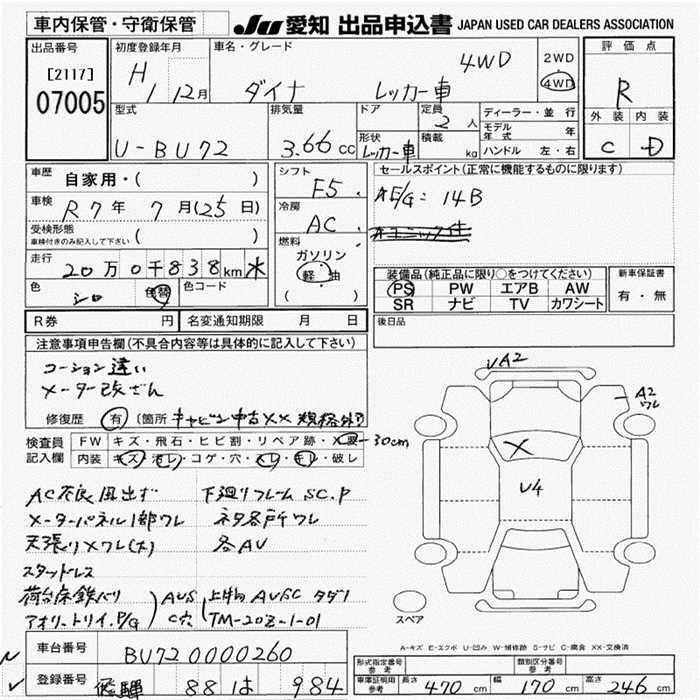 車内保管・守衛保管
JU 愛知 出品申込書 JAPAN USED CAR DEALERS ASSOCIATION
出品番号
[2117]
07005
初度登録年月
H 1 12月
車名・グレード
ダイナ レッカー車 4WD
2WD
4WD
評価点
R
外装 内装
C D
型式
U-BU72
排気量
3.66 cc
ドア
形状
レッカー車
定員
2 人
積載
kg
ディーラー・並行
モデル年式 年
ハンドル 左・右
車歴
自家用・( )
車検
R7年 7月(25日)
受検形態
車検付きのみ記入して下さい ( )
走行
20万0千838km
色
シロ
色替
色コード
シフト
F5
冷房
AC
燃料
ガソリン
軽・油
( )
セールスポイント(正常に機能するものに限ります)
AE/G=14B
装備品(純正品に限り○をつけてください)
PS PW エアB AW
SR ナビ TV カワシート
新車保証書
有・無
R券 円
名変通知期限 月 日
後日品
注意事項申告欄(不具合内容等は具体的に記入して下さい)
コーション違い
メーター改ざん
修復歴 有 (箇所 キャビン中古XX 規格外
検査員記入欄
FW キズ・飛石・ヒビ割・リペア跡・X要 -30cm
内装 キズ・汚レ・コゲ・穴・スレ・キレ・破レ
AC不良風出ず 下廻りフレームSC.P
メーターパネル1部ワレ
天張りXワレ(大) 各AV
スタッドレス
荷台
アオリ
AUS
C穴
上物AVSC ダダノ
TM-20Z-1-01
VA2
A2
ワレ
X
U4
スペア
A-キズ E-エクボ U-凹み W-補修跡 S-サビ C-腐食 XX-交換済
車台番号
BU72 0000260
登録番号
飛騨 88 は 984
形式指定番号 参考
類別区分番号 参考
車庫証明用 参考
長さ 470 cm
幅 170 cm
高さ 246 cm